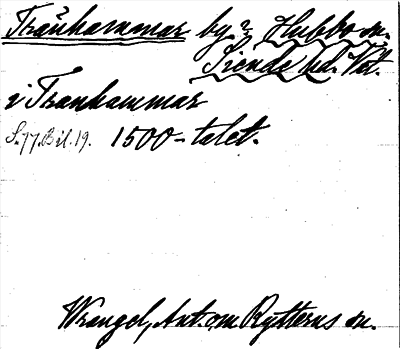 Tranhammar by? Hubbo sn.
Siende hd. Vstl.
i Tranhammar
S.77. Bil. 19. 1500-talet.
Wrangel, Ant. om Rytterns sn.